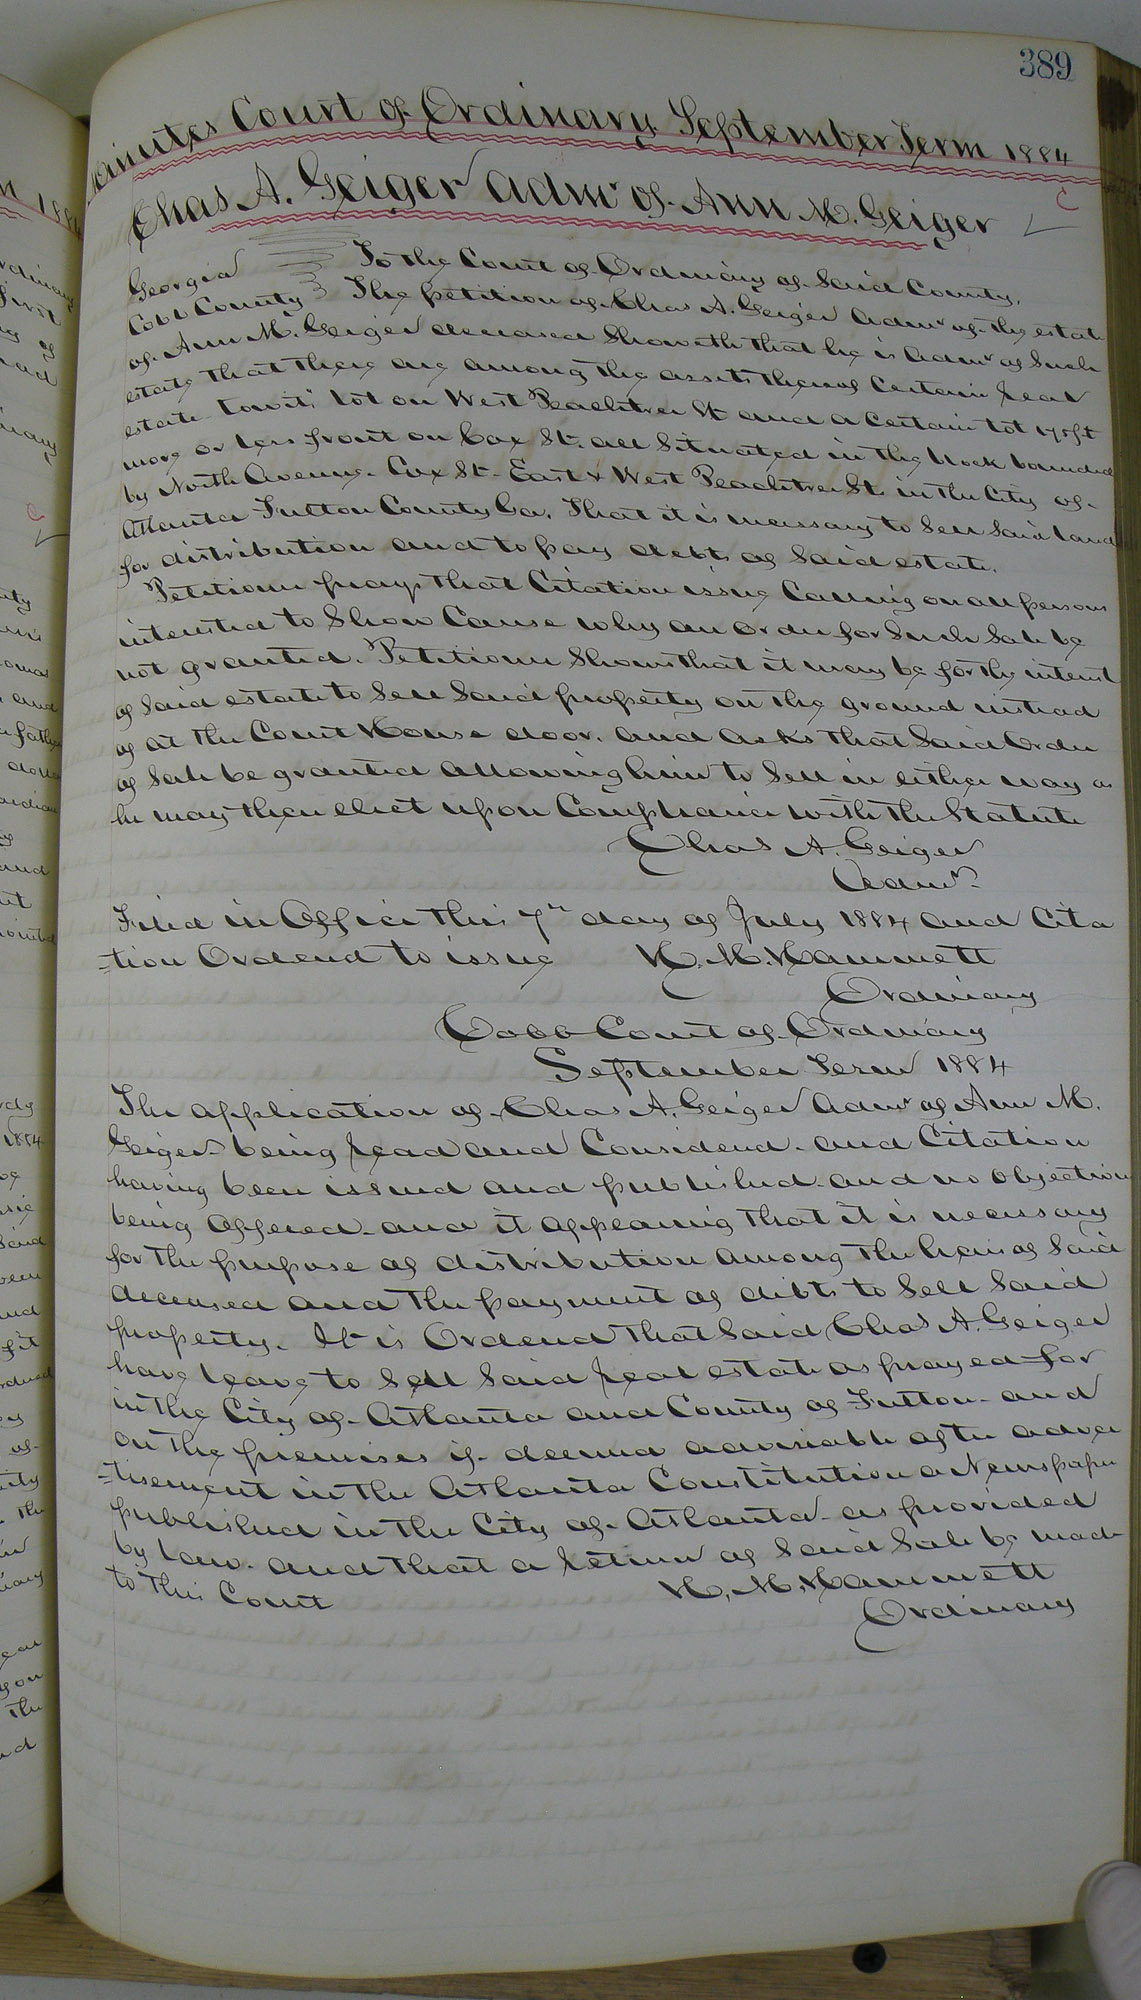 389
Minutes Court of Ordinary September Term 1884
Chas A. Geiger admr of Ann M. Geiger
Georgia
Cobb County
To the Court of Ordinary of Said County,
The petition of Chas A. Geiger Admr of the estate
of Ann M. Geiger deceased Showeth that he is admr of Such
estate that there are among the assets thereof Certain real
estate towit: lot on West Peachtree St and a Certain lot ft
more or less front on Cox St. all Situated in the block bounded
by North Avenue. Cox St. East & West Peachtree St in the City of
Atlanta Fulton County Ga. That it is necessary to Sell Said land
for distribution and to pay debts of Said estate.
Petitioner prays that Citation issue Calling on all persons
interested to Show Cause why an order for Such Sale be
not granted. Petitioner Shows that it may be for the interest
of Said estate to Sell Said property on the ground instead
of at the Court House door. and asks that Said Order
of Sale be granted allowing him to Sell in either way as
he may then elect upon Compliance with the Statute
Chas A. Geiger
Admr.
Filed in Office this 7th day of July 1884 and Cita
=tion Ordered to issue H. M. Hammett
Ordinary
Cobb Court of Ordinary
September Term 1884
The application of Chas A. Geiger Admr of Ann M.
Geiger being read and Considered and Citation
having been issued and published and no objection
being offered and it appearing that it is necessary
for the purpose of distribution among the heirs of Said
deceased and the payment of debts to Sell Said
property. It is Ordered that Said Chas A. Geiger
have leave to Sell Said real estate as prayed for
in the City of Atlanta and County of Fulton and
on the premises if deemed advisable after adver
=tisement in the Atlanta Constitution a Newspaper
published in the City of Atlanta as provided
by law. and that a return of Said Sale be made
to this Court H. M. Hammett
Ordinary